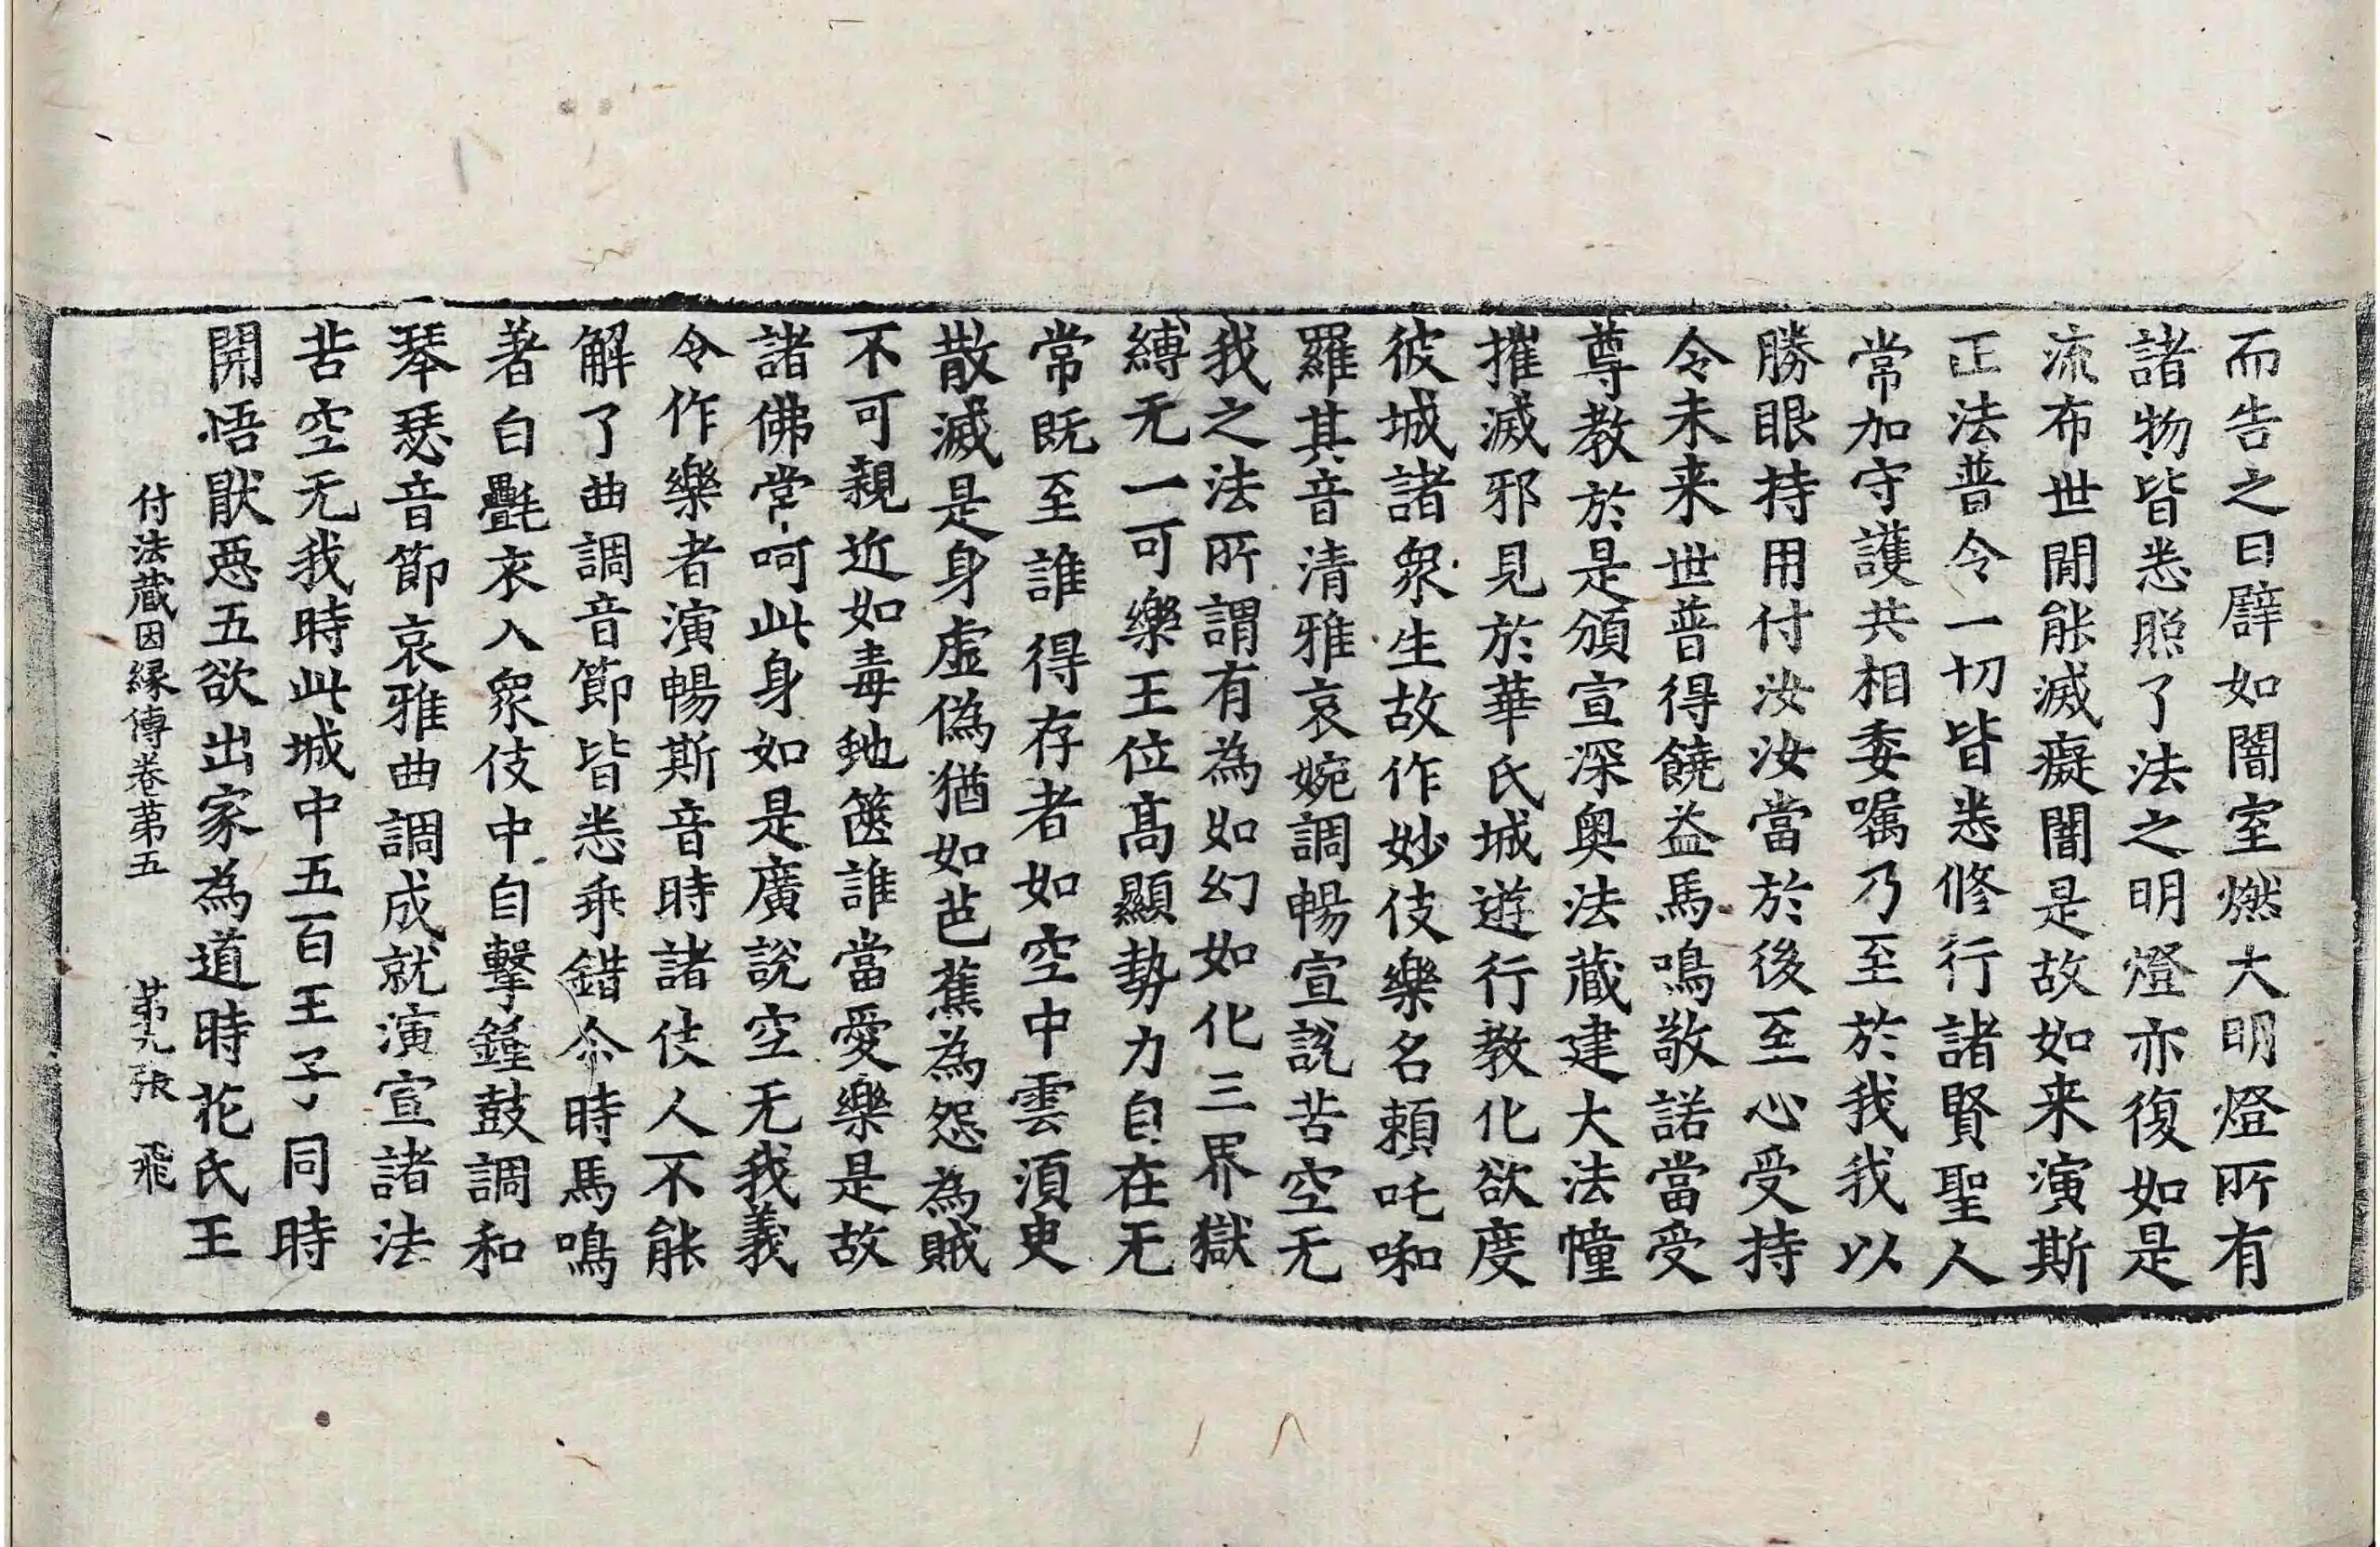 而告之曰譬如闇室燃大明燈所有
諸物皆悉照了法之明燈亦復如是
流布世閒能滅癡闇是故如来演斯
正法普令一切皆悉修行諸賢聖人
常加守護共相委囑乃至於我我以
勝眼持用付汝汝當於後至心受持
令未来世普得饒益馬鳴敬諾當受
尊教於是頒宣深奥法藏建大法幢
摧滅邪見於華氏城遊行教化欲度
彼城諸衆生故作妙伎樂名頼吒啝
羅其音清雅哀婉調暢宣說苦空无
我之法所謂有為如幻如化三界獄
縛无一可樂王位髙顯勢力自在无
常既至誰得存者如空中雲須臾
散滅是身虛偽猶如芭蕉為怨為賊
不可親近如毒虵篋誰當愛樂是故
諸佛常呵此身如是廣說空无我義
令作樂者演暢斯音時諸伎人不能
解了曲調音節皆悉乖錯尒時馬鳴
著白㲲衣入衆伎中自擊鍾鼓調和
琴瑟音節哀雅曲調成就演宣諸法
苦空无我時此城中五百王子同時
開悟猒惡五欲出家為道時花氏王
付法藏因緣傳卷苐五　苐九張　飛